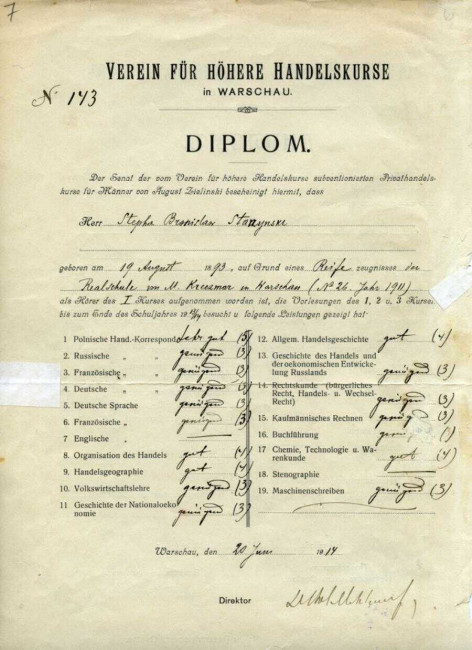 7
VEREIN FÜR HÖHERE HANDELSKURSE
in WARSCHAU.
№ 143
DIPLOM.
Der Senat der vom Verein für höhere Handelskurse subventionierten Privathandels-
kurse für Männer von August Zielinski bescheinigt hiermit, dass
Herr Stephan Bronislaw Starzynski
geboren am 19 August 1893, auf Grund eines Reife zeugnisses der
Realschule von M. Kreczmar in Warschau (№ 26, Jahr 1911)
als Hörer des I Kurses aufgenommen worden ist, die Vorlesungen des 1, 2 u. 3 Kurses
bis zum Ende des Schuljahres 19 besucht u. folgende Leistungen gezeigt hat:
1 Polnische Hand.-Korrespond. sehr gut (5)
2. Russische „ genügend (3)
3. Französische „ genügend (3)
4. Deutsche „ genügend (3)
5. Deutsche Sprache genügend (3)
6. Französische „ genügend (3)
7 Englische „ —
8. Organisation des Handels gut (4)
9. Handelsgeographie gut (4)
10. Volkswirtschaftslehre genügend (3)
11 Geschichte der Nationaloeko-
nomie genügend (3)
12. Allgem. Handelsgeschichte gut (4)
13. Geschichte des Handels und
der oekonomischen Entwicke-
lung Russlands genügend (3)
14. Rechtskunde (bürgerliches
Recht, Handels- u. Wechsel-
Recht) genügend (3)
15. Kaufmännisches Rechnen genügend (3)
16. Buchführung genügend
17 Chemie, Technologie u. Wa-
renkunde gut (4)
18. Stenographie —
19. Maschinenschreiben genügend (3)
Warschau, den 20 Juni 1914
Direktor